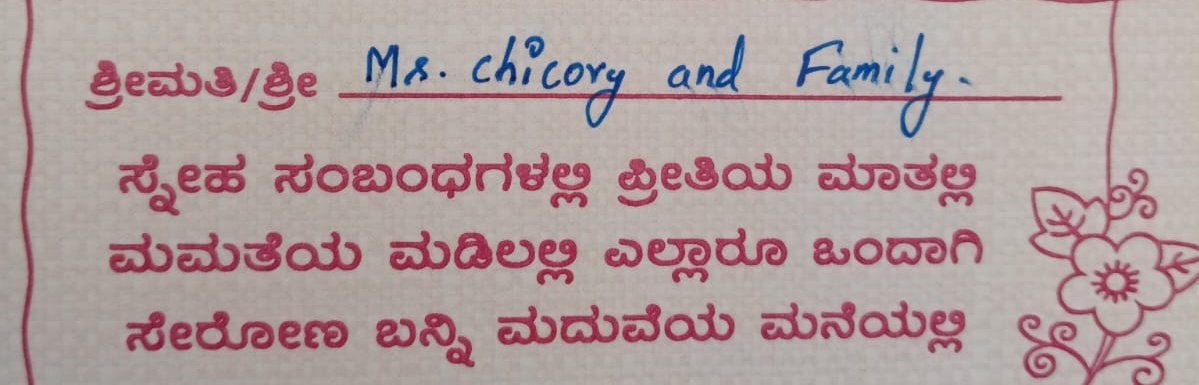 ಶ್ರೀಮತಿ/ಶ್ರೀ Mr. chicory and Family.
ಸ್ನೇಹ ಸಂಬಂಧಗಳಲ್ಲಿ ಪ್ರೀತಿಯ ಮಾತಲ್ಲಿ
ಮಮತೆಯ ಮಡಿಲಲ್ಲಿ ಎಲ್ಲಾರೂ ಒಂದಾಗಿ
ಸೇರೋಣ ಬನ್ನಿ ಮದುವೆಯ ಮನೆಯಲ್ಲಿ